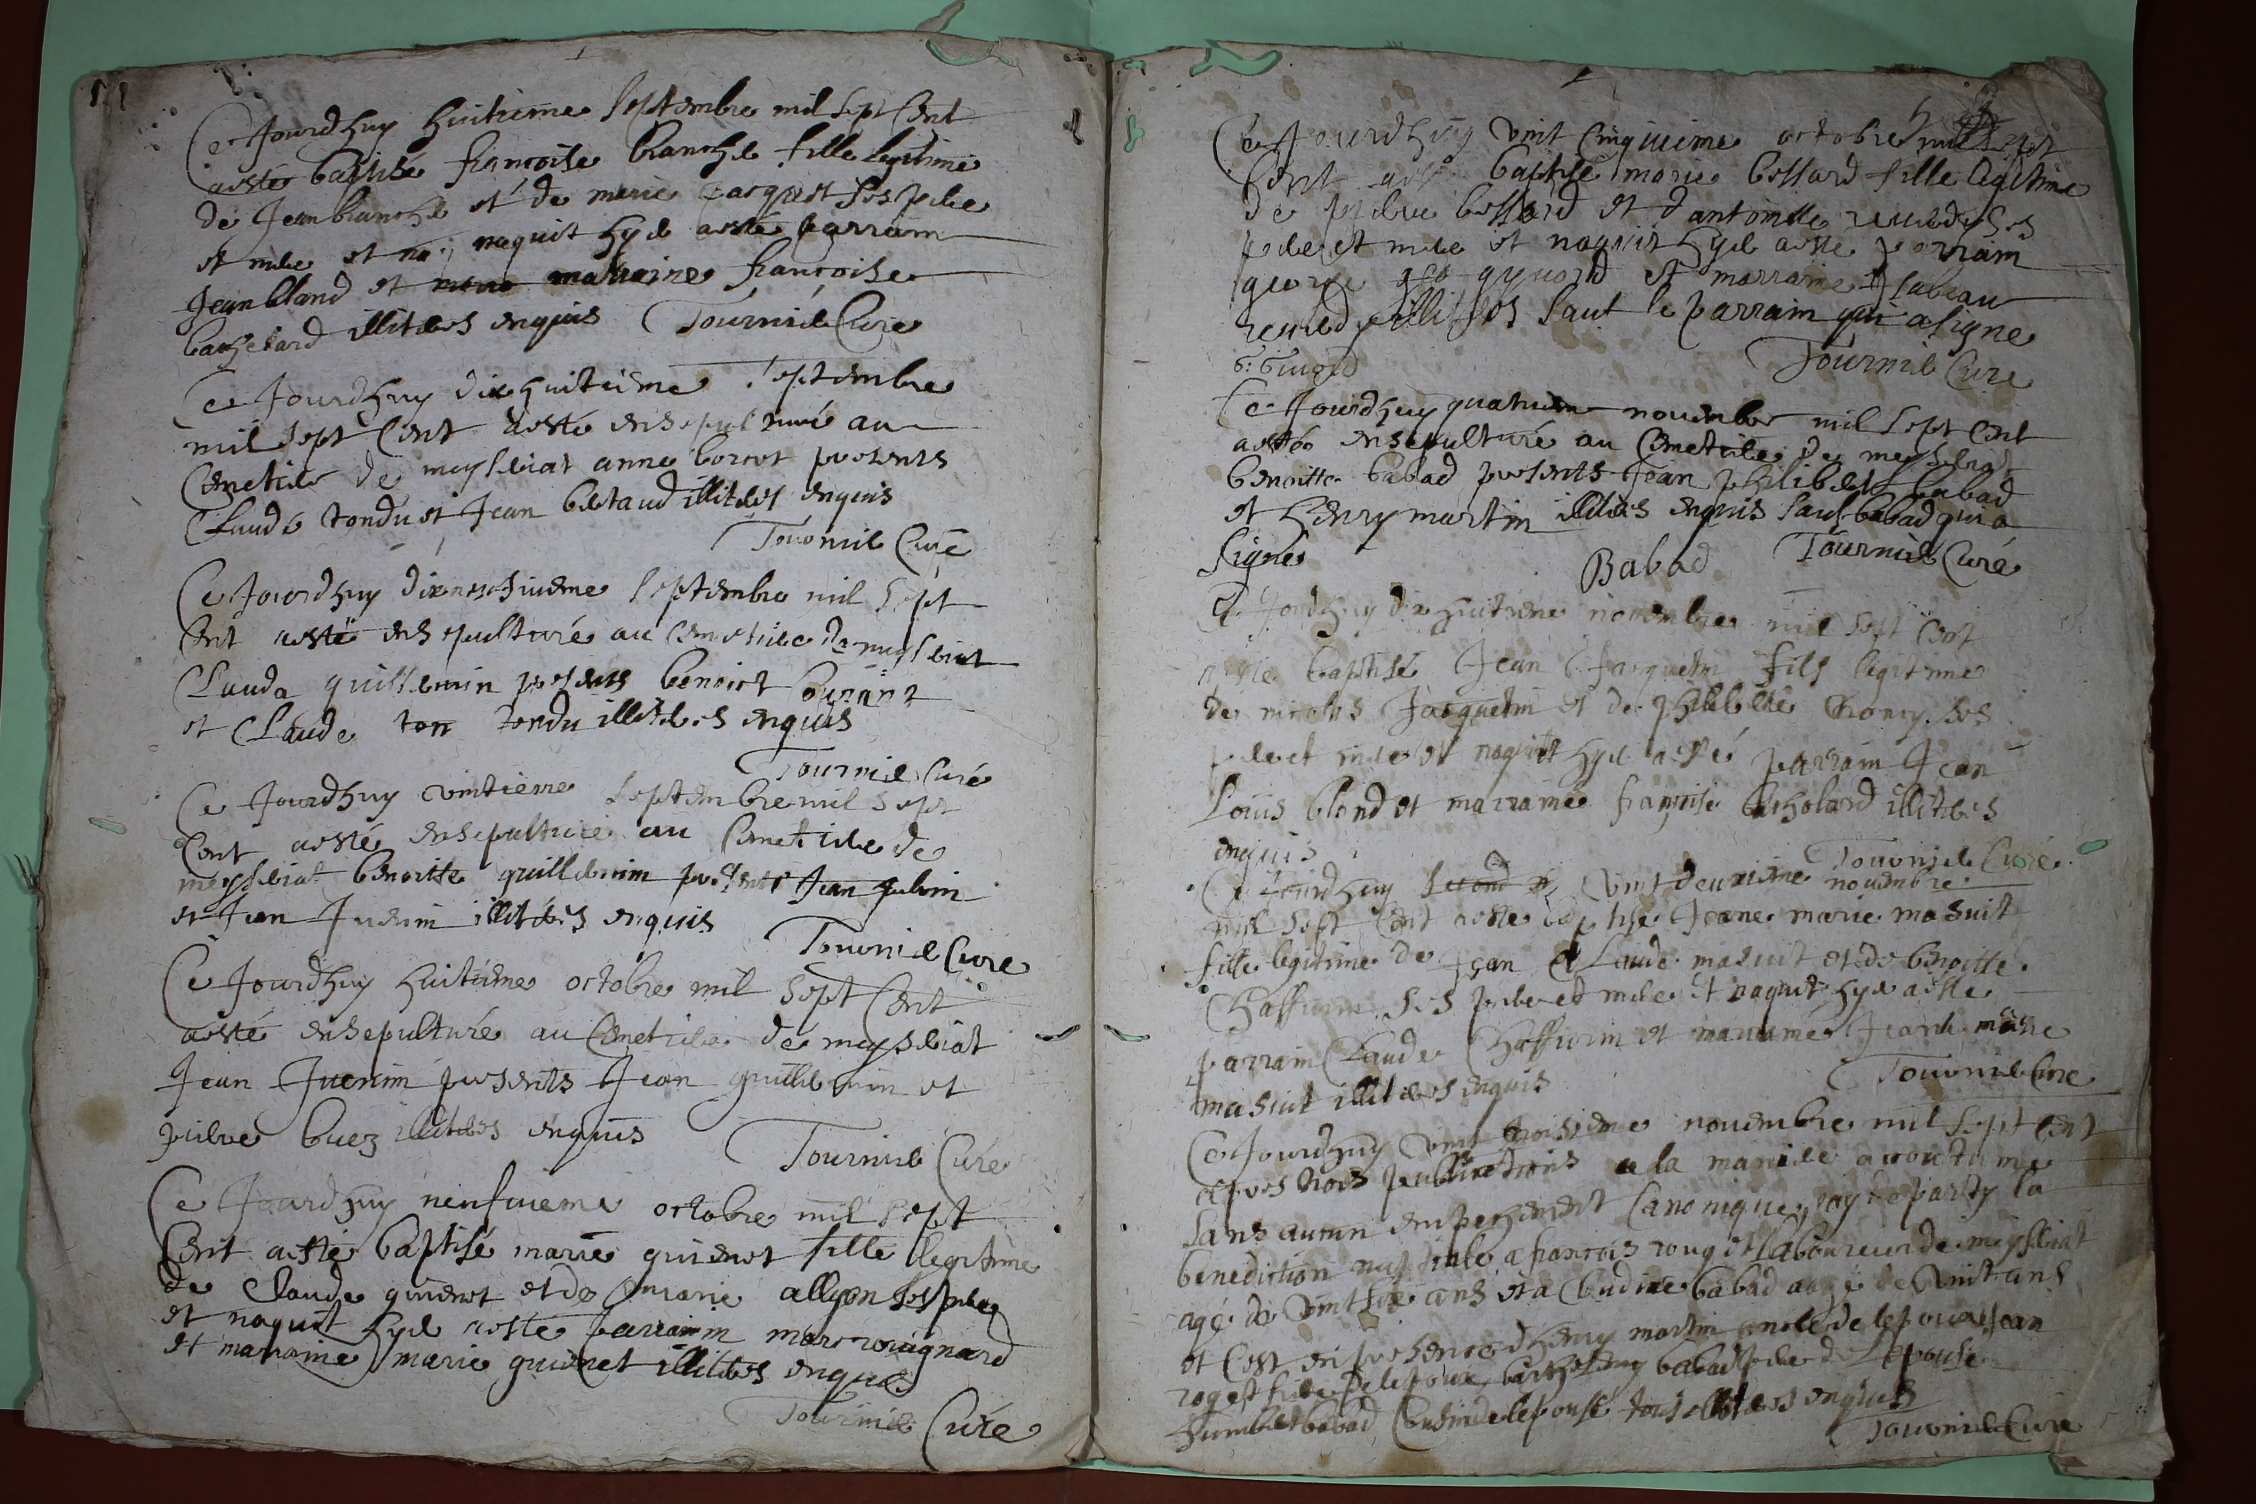 Ce Jourdhuy huitieme septembre mil sept Cent
aesté baptisé francoise branche fille legitime
de Jean branche et de marie Jacquet ses pere
et mere et naquit hyer aesté parrain
Jean bland et marraine francoise
bachelard illiteres enquis Tournier Curé
Ce Jourdhuy dix huitieme septembre
mil sept Cent aesté ensepulturé au
Cemetiere de meysseriat anne borcet presents
Claude tondu et Jean bertaud illiteres enquis
Tournier Curé
Ce Jourdhuy dixneufvieme septembre mil sept
Cent aesté ensepulturé au Cemetiere de meysseriat
Clauda guillermin presents benoict
et Claude ton tondu illiteres enquis
Tournier Curé
Ce Jourdhuy vintieme septembre mil sept
Cent aesté ensepulturé au Cemetiere de
meysseriat benoitte guillermin presents Jean
et Jean Juenin illiteres enquis
Tournier Curé
Ce Jourdhuy huitieme octobre mil sept Cent
aesté ensepulturé au Cemetiere de meysseriat
Jean Juenin presents Jean guillermin et
pierre buez illiteres enquis
Tournier Curé
Ce Jourdhuy neufvieme octobre mil sept
Cent aesté baptisé marie guienet fille legitime
de Claude guienet et de marie allyon ses pere
et naquit hyer aesté parrain marc rouignard
et marraine marie guienet illiteres enquis
Tournier Curé
Ce Jourdhuy vint Cinquieme octobre mil sept
Cent aesté baptisé marie bossard fille legitime
de pierre bossard et dantoinette ses
pere et mere et naquit hyer aesté parrain
george et marraine Isabeau
illiteres sauf le parrain qui a signe
Tournier Curé
Ce Jourdhuy quatrieme novembre mil sept Cent
aesté ensepulturé au Cemetiere de meysseriat
benoitte babad presents Jean philibert babad
et henry martin illiteres enquis sauf babad qui a
signé
Babad Tournier Curé
Ce Jourdhuy dix huitieme novembre mil sept Cent
aesté baptisé Jean Jacquetin fils legitime
de nicolas Jacquetin et de philiberte ses
pere et mere et naquit hyer aesté parrain Jean
Louis blond et marraine françoise bacholard illiteres
enquis
Tournier Curé
Ce Jourdhuy second vint deuxieme novembre
mil sept Cent aesté baptisé Jeane marie masuit
fille legitime de Jean Claude masuit et de benoitte
Chaffurin ses pere et mere et naquit hyer aesté
parrain Claude Chaffurin et marraine Jeane marie
masuit illiteres enquis
Tournier Curé
Ce Jourdhuy vint troisieme novembre mil sept Cent
apres trois publications a la maniere acoutume
sans aucun empechement Canonique jay departy la
benediction nuptiale a francois rouget laboureur de meysseriat
agé de vint six ans et a Claudine babad agé de vint ans
et Cest en presence dhenry martin oncle de lepoux Jean
roget frere de lepoux, barthelemy babad pere de lepouse
humbert babad Cousin de lepouse tous illiteres enquis
Tournier Curé